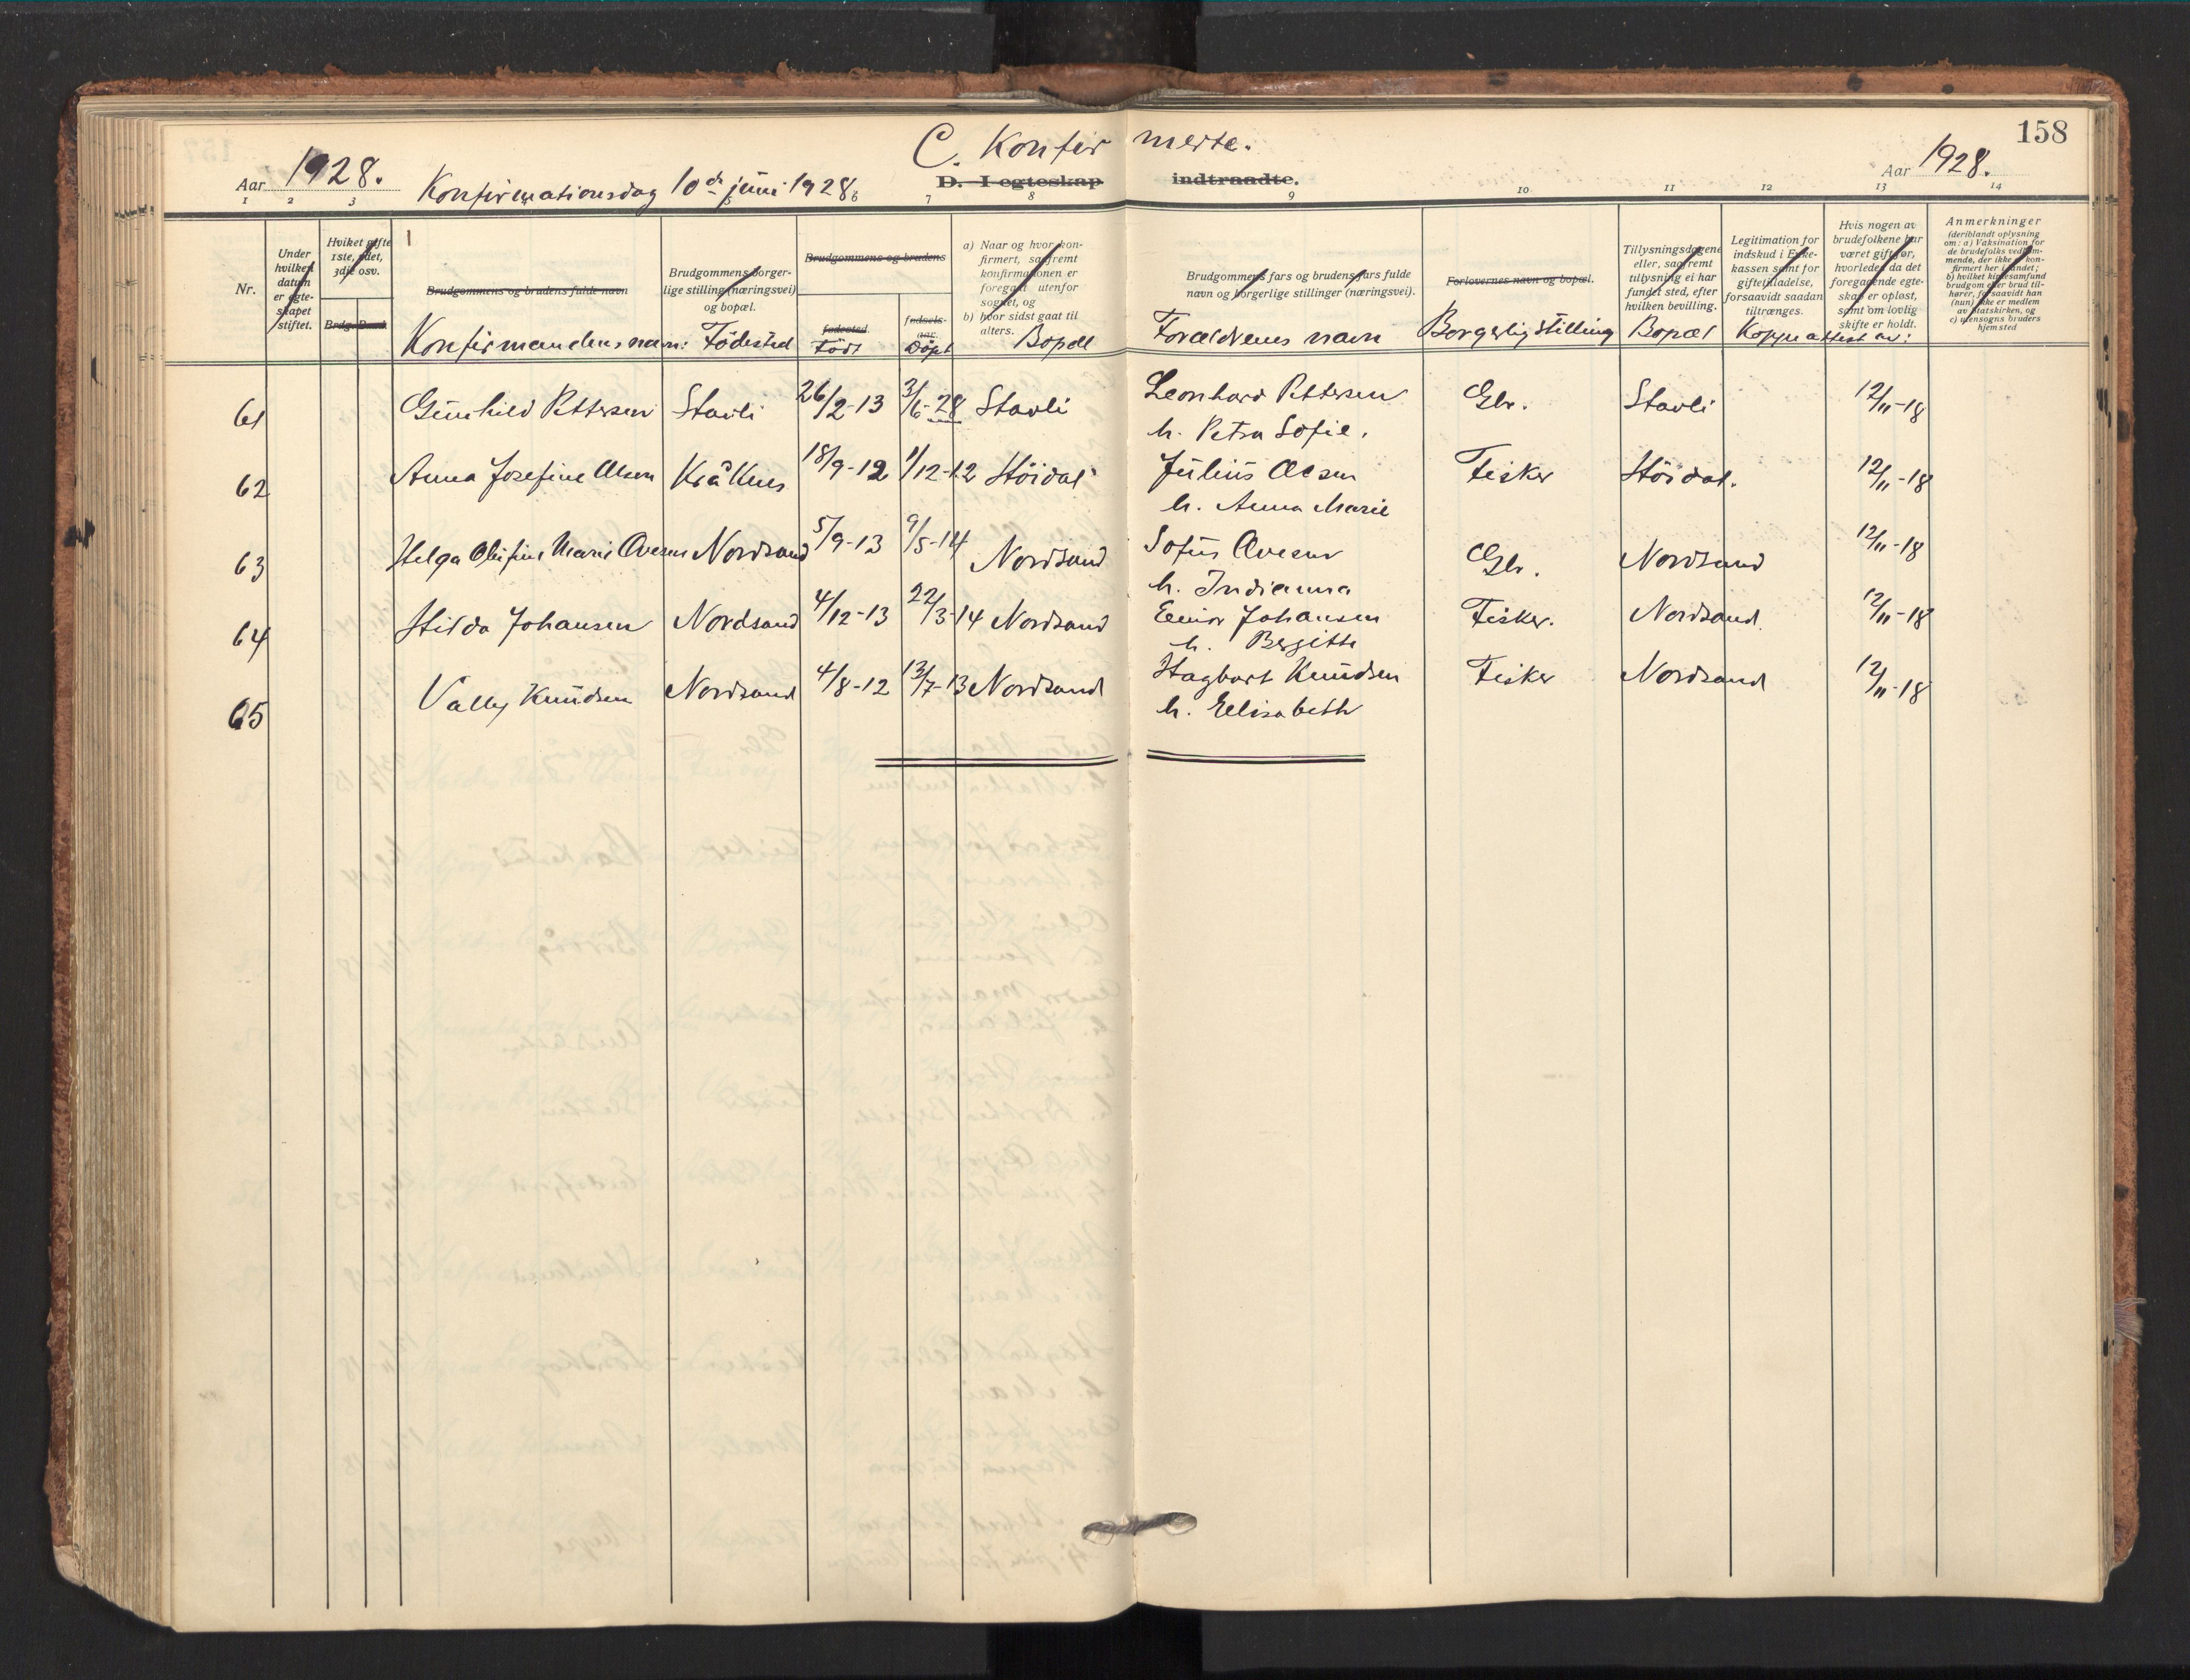 158
C. Konfirmerte.
Aar 1928.
Konfirmationsdag 10de juni 1928.
D. I egteskap indtraadte.
Aar 1928.
1 2 3 6 7 8 9 10 11 12 13 14
Nr.
Under hvilken datum er egteskapet stiftet.
Hvilket gifte 1ste, 2det, 3dje osv.
Brdg. Brud
Brudgommens og brudens fulde navn
Konfirmandens navn:
Brudgommens borgerlige stilling (næringsvei) og bopæl.
Födested
Brudgommens og brudens
fødested.
Födt
fødselsaar.
Döpt
a) Naar og hvor konfirmert, saafremt konfirmationen er foregaat utenfor sognet, og
b) hvor sidst gaat til alters.
Bopæl
Brudgommens fars og brudens fars fulde navn og borgerlige stillinger (næringsvei).
Forældrenes navn
Forlovernes navn og bopæl.
Borgerlig stilling
Tillysningsdagene eller, saafremt tillysning ei har fundet sted, efter hvilken bevilling.
Bopæl
Legitimation for indskud i Enkekassen samt for giftetilladelse, forsaavidt saadan tiltrænges.
Koppeattest av:
Hvis nogen av brudefolkene har været gift før, hvorledes da det foregaaende egteskap er opløst, samt om lovlig skifte er holdt.
Anmerkninger
(deriblandt oplysning om: a) Vaksination for de brudefolks vedkommende, der ikke er konfirmert her i landet;
b) hvilket kirkesamfund brudgom eller brud tilhører, forsaavidt han (hun) ikke er medlem av statskirken, og
c) utensogns bruders hjemsted
61 Gunhild Pettersen Stavli 26/2-13 3/6-28 Stavli Leonhard Pettersen Gbr. Stavli 12/11-18
h. Petra Sofie.
62 Anna Josefine Olsen Kråknes 18/9-12 1/12-12 Höidal Julius Olsen Fisker Höidal. 12/11-18
h. Anna Marie
63 Helga Olufine Marie Ovesen Nordsand 5/9-13 9/5-14 Nordsand Sofus Ovesen Gbr. Nordsand 12/11-18
h. Indianna
64 Hilda Johansen Nordsand 4/12-13 22/3-14 Nordsand Johansen Fisker. Nordsand. 12/11-18
h. Bergitte
65 Vally Knudsen Nordsand 4/8-12 13/7-13 Nordsand Hagbart Knudsen Fisker Nordsand 12/11-18
h. Ellisabeth